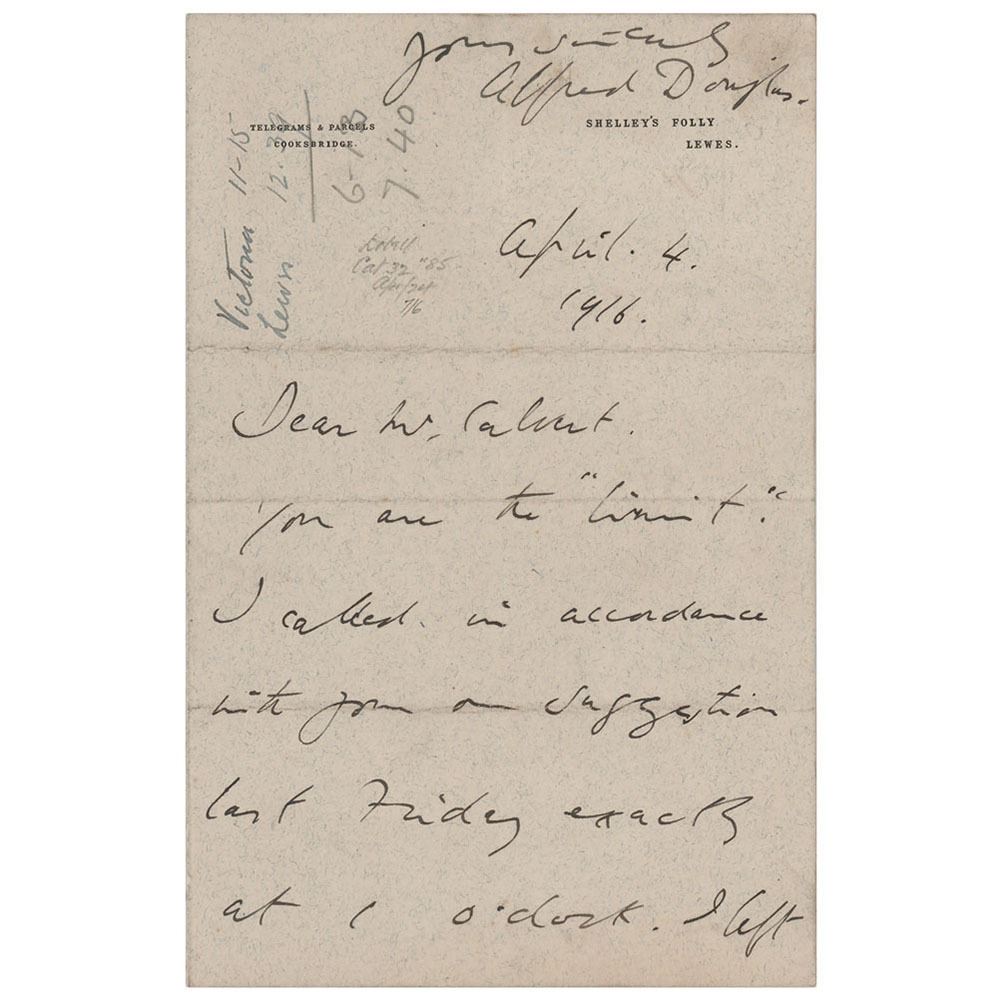 Yours sincerely
Alfred Douglas.
TELEGRAMS & PARCELS
COOKSBRIDGE.
SHELLEY'S FOLLY
LEWES.
Victoria 11-15
Lewes 12.30
6-13
7.40
Cat 32 "85
7/6
April. 4.
1916.
Dear Mr. Calvert.
You are the "limit".
I called. in accordance
with your own suggestion
last Friday exactly
at 1 o'clock. I left